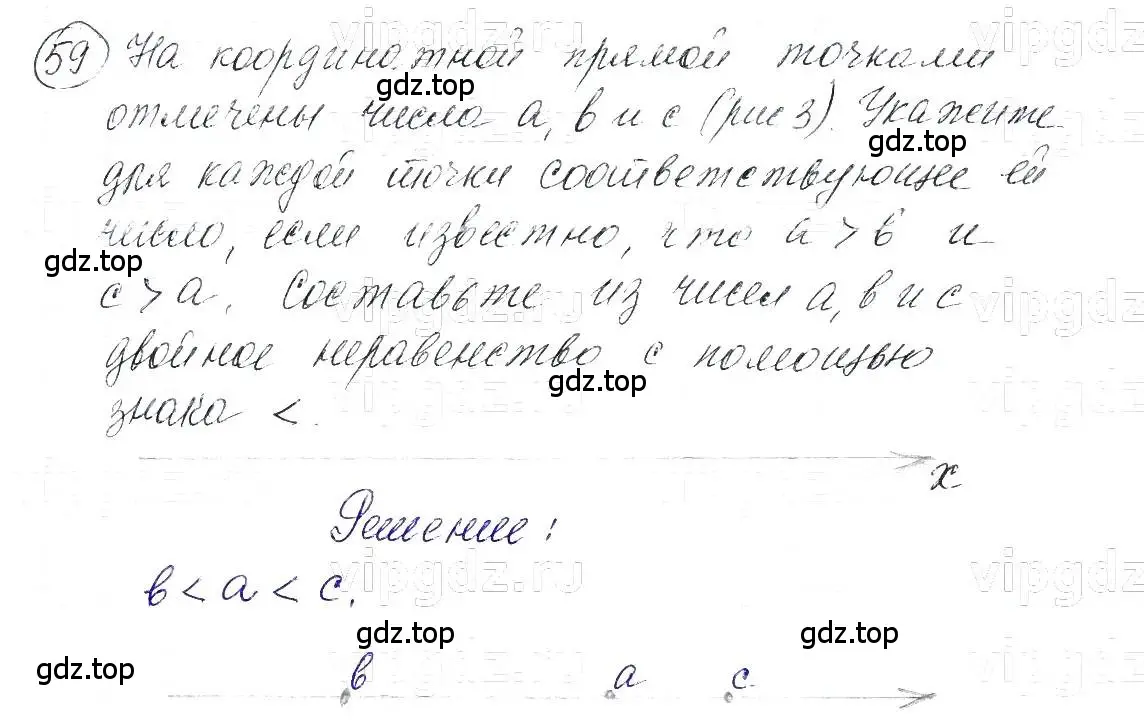 59 На координатной прямой точками
gdz.top
отмечены числа а, в и с (рис 3). Укажите
gdz.top
для каждой точки соответствующее ей
число, если известно, что а > в и
gdz.top
с > а. Составьте из чисел а, в и с
двойное неравенство с помощью
gdz.top
знака <.
x
Решение:
в < а < с.
gdz.top gdz.top
gdz.top
в а с
vipgdz.ru